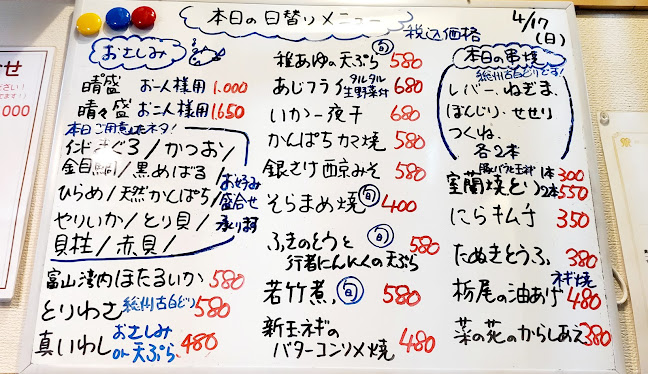 本日の日替りメニュー
税込価格
4/17
(日)
おさしみ
晴盛 お一人様用 1,000
晴々盛 お二人様用 1,650
本日ご用意したネタ!
インドまぐろ/かつお/
金目鯛/黒めばる/
ひらめ/天然かんぱち/
やりいか/とり貝/
貝柱/赤貝/
お好み
盛合せ
承ります
富山湾内ほたるいか 580
とりわさ 総州古白どり 580
真いわし おさしみ or 天ぷら 480
稚あゆの天ぷら 旬 580
あじフライ 生タルタル野菜付 680
いか一夜干 680
かんぱちカマ焼 580
銀さけ西京みそ 580
そらまめ焼 旬 400
ふきのとうと
行者にんにくの天ぷら 旬 580
若竹煮 旬 580
新玉ネギの
バターコンソメ焼 480
本日の串焼
総州古白どりです!
レバー、ねぎま、
ぼんじり・せせり
つくね、
各2本
豚バラと玉ネギ
室蘭焼とり 1本300
2本550
にらキムチ 350
たぬきとうふ 380
ネギ焼
栃尾の油あげ 480
菜の花のからしあえ 380
せ
000